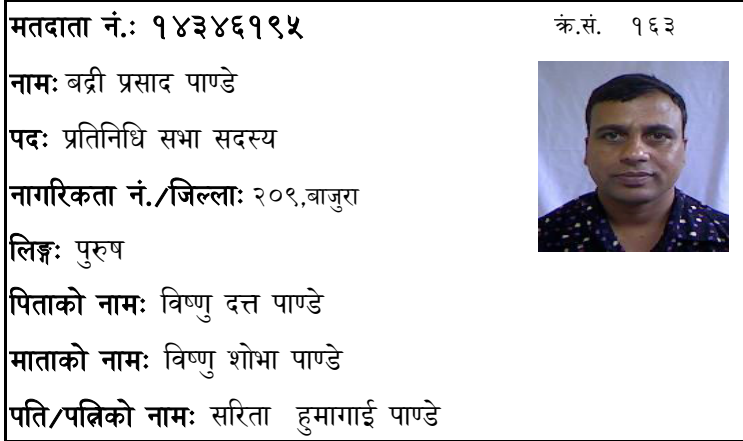 मतदाता नं.: १४३४६१९५ क्रं.सं. १६३
नाम: बद्री प्रसाद पाण्डे
पद: प्रतिनिधि सभा सदस्य
नागरिकता नं./जिल्ला: २०९,बाजुरा
लिङ्ग: पुरुष
पिताको नाम: विष्णु दत्त पाण्डे
माताको नाम: विष्णु शोभा पाण्डे
पति/पत्निको नाम: सरिता हुमागाई पाण्डे